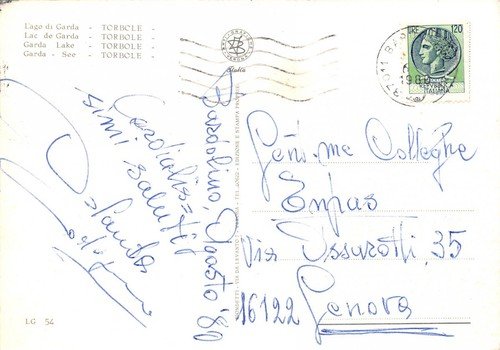 Lago di Garda - TORBOLE -
Lac de Garda - TORBOLE -
Garda Lake - TORBOLE -
Garda - See - TORBOLE -
LIRE 120
ITALIANA
37011
1980
Bardolino, Agosto '80
Cordialis-
simi saluti
Gen.me Colleghe
Enpas
Via Assarotti, 35
16122 Genova
LG 54